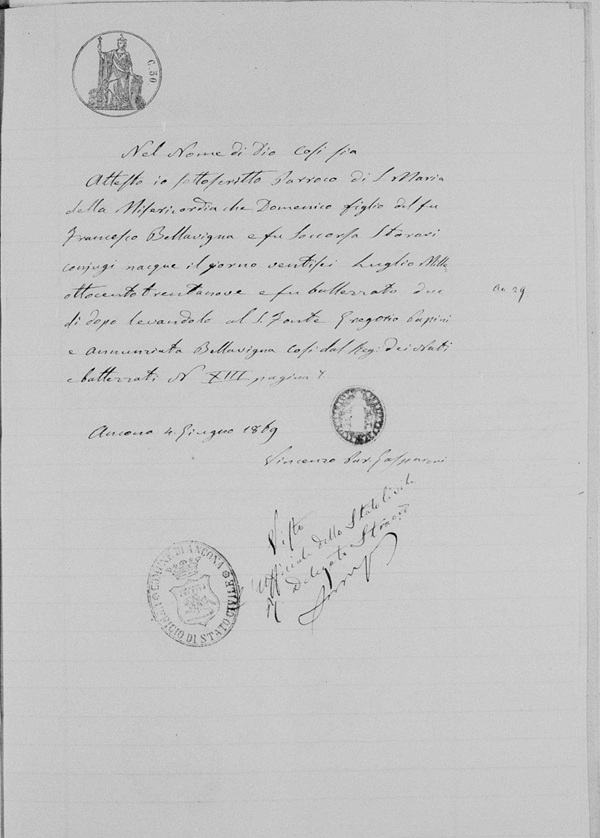 C. 50
Nel Nome di Dio Così sia
Attesto io sottoscritto Parroco di S. Maria
della Misericordia che Domenico figlio del fu
Francesco Bellavigna e fu Soccorsa Storari
conjugi nacque il giorno ventisei Luglio Mille
ottocento trentanove e fu battezzato due
dì dopo levandolo al S. Fonte Gregorio Papini
e Annunziata Bellavigna Così dal Reg. dei Nati
e battezzati N XIII pagina
29
Ancona 4 Giugno 1869
Vincenzo Par Gasparoni
Visto
Officiale dello Stato Civile
Delegato
COMUNE DI ANCONA
UFFICIO DI STATO CIVILE